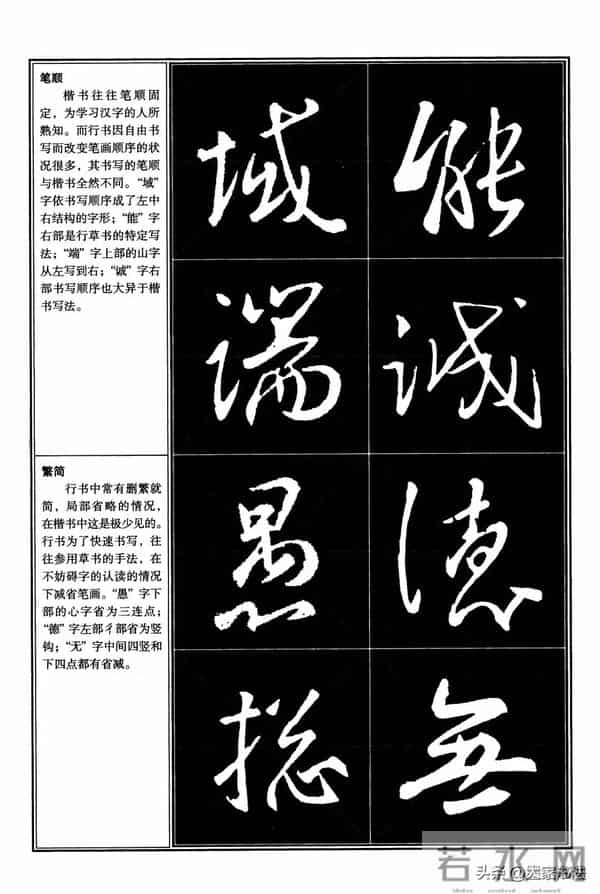 笔顺
楷书往往笔顺固
定，为学习汉字的人所
熟知。而行书因自由书
写而改变笔画顺序的状
况很多，其书写的笔顺
与楷书全然不同。“域”
字依书写顺序成了左中
右结构的字形；“能”字
右部是行草书的特定写
法；“端”字上部的山字
从左写到右；“诚”字右
部书写顺序也大异于楷
书写法。
繁简
行书中常有删繁就
简，局部省略的情况，
在楷书中这是极少见的。
行书为了快速书写，往
往参用草书的手法，在
不妨碍字的认读的情况
下减省笔画。“愚”字下
部的心字省为三连点；
“德”字左部彳部省为竖
钩；“无”字中间四竖和
下四点都有省减。
域 能
端 誠
愚 德
揔 無
若水网
头条@